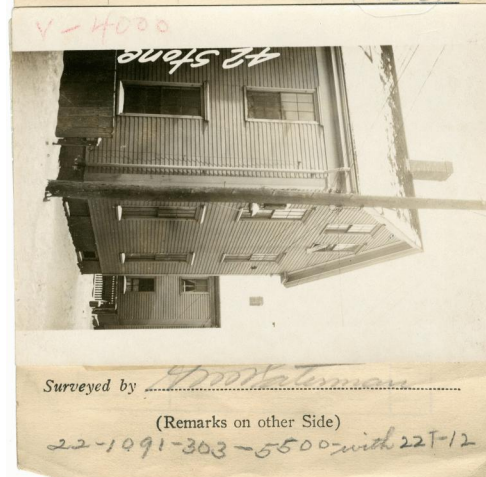 V-4000
42 Stone
Surveyed by G W Waterman
(Remarks on other Side)
22-1091-303-5500-with 22T-12